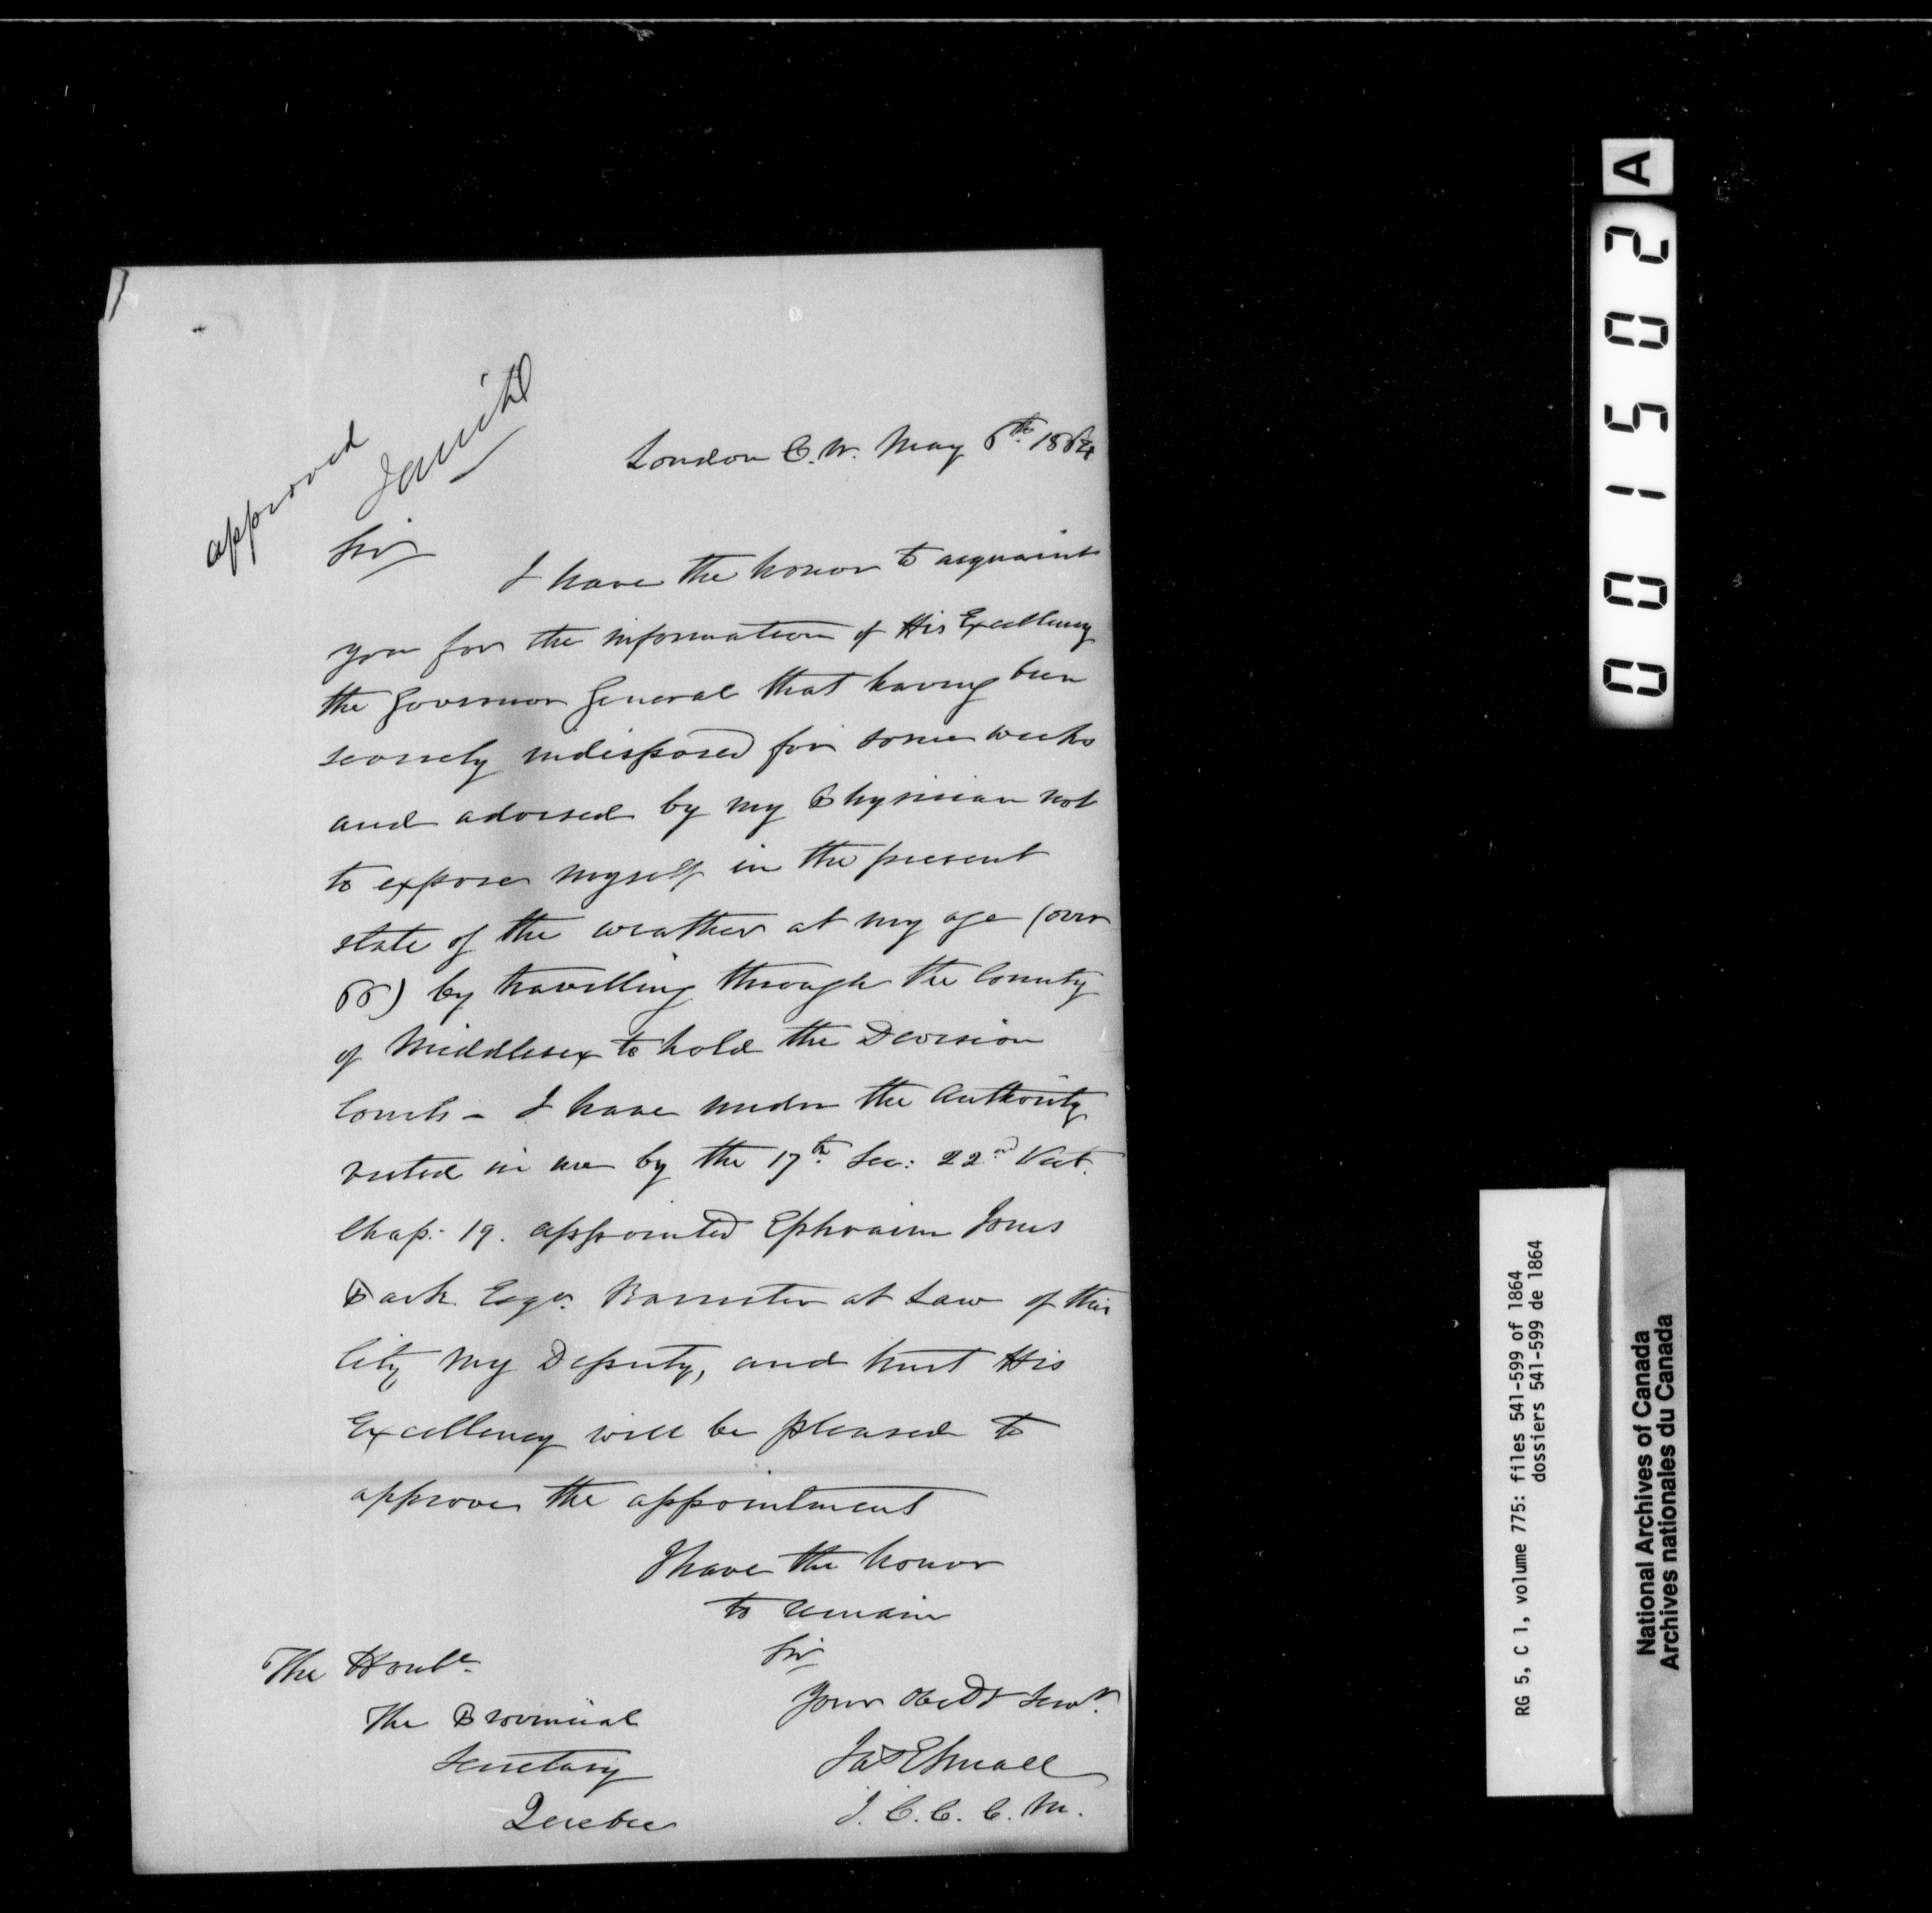 approved
London C.W. May 6th. 1864
Sir
I have the honor to acquaint
you for the information of His Excellency
the Governor General that having been
severely indisposed for some weeks
and advised by my Physician not
to expose myself in the present
state of the weather at my age (over
66) by travelling through the County
of Middlesex to hold the Division
Courts - I have under the Authority
vested in me by the 17th. Sec: 22nd Vict.
Chap: 19. appointed Ephraim Jones
Park Esqr. Barrister at Law of this
City my Deputy, and trust His
Excellency will be pleased to
approve the appointment
I have the honor
to remain
Sir
Your Obedt Servt.
Jas E Small
J. C. C. C. M.
The Honble.
The Provincial
Secretary
Quebec
001502 A
RG 5, C 1, volume 775: files 541-599 of 1864
dossiers 541-599 de 1864
National Archives of Canada
Archives nationales du Canada